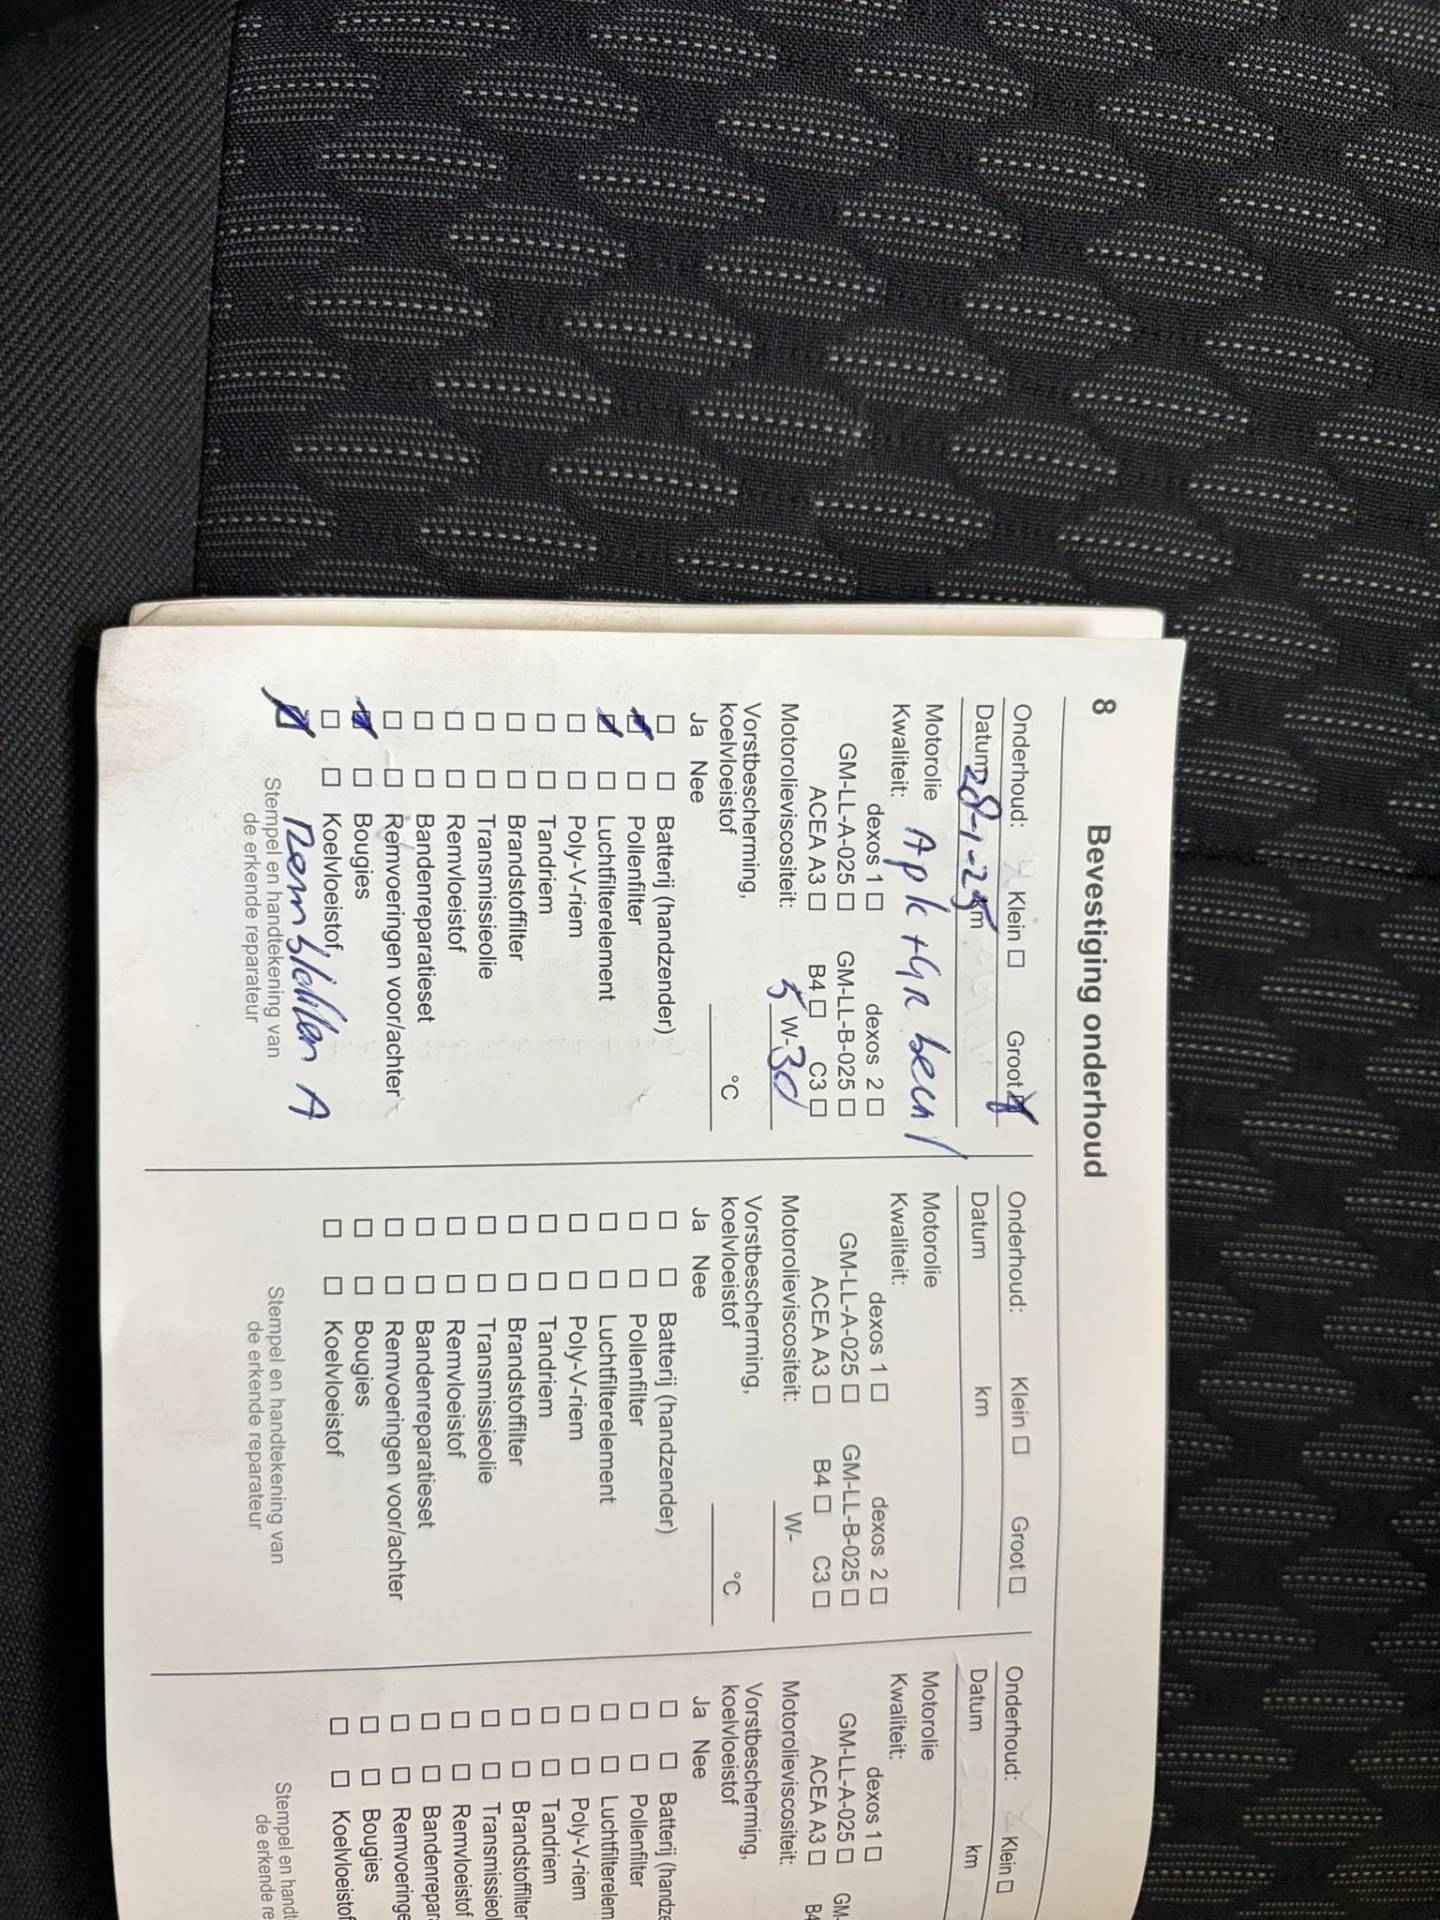 8 Bevestiging onderhoud
Onderhoud: Klein ☐ Groot ☒
Datum 28-1-25 km
Motorolie Apk + GR beurt
Kwaliteit:
dexos 1 ☐ dexos 2 ☐
GM-LL-A-025 ☐ GM-LL-B-025 ☐
ACEA A3 ☐ B4 ☐ C3 ☐
Motorolieviscositeit: 5 W-30
Vorstbescherming,
koelvloeistof °C
Ja Nee
☐ ☐ Batterij (handzender)
☒ ☐ Pollenfilter
☒ ☐ Luchtfilterelement
☐ ☐ Poly-V-riem
☐ ☐ Tandriem
☐ ☐ Brandstoffilter
☐ ☐ Transmissieolie
☐ ☐ Remvloeistof
☐ ☐ Bandenreparatieset
☐ ☐ Remvoeringen voor/achter
☒ ☐ Bougies
☐ ☐ Koelvloeistof
☒ remblokken A
Stempel en handtekening van
de erkende reparateur
Onderhoud: Klein ☐ Groot ☐
Datum km
Motorolie
Kwaliteit:
dexos 1 ☐ dexos 2 ☐
GM-LL-A-025 ☐ GM-LL-B-025 ☐
ACEA A3 ☐ B4 ☐ C3 ☐
Motorolieviscositeit: W-
Vorstbescherming,
koelvloeistof °C
Ja Nee
☐ ☐ Batterij (handzender)
☐ ☐ Pollenfilter
☐ ☐ Luchtfilterelement
☐ ☐ Poly-V-riem
☐ ☐ Tandriem
☐ ☐ Brandstoffilter
☐ ☐ Transmissieolie
☐ ☐ Remvloeistof
☐ ☐ Bandenreparatieset
☐ ☐ Remvoeringen voor/achter
☐ ☐ Bougies
☐ ☐ Koelvloeistof
Stempel en handtekening van
de erkende reparateur
Onderhoud: Klein ☐
Datum km
Motorolie
Kwaliteit:
dexos 1 ☐
GM-LL-A-025 ☐ GM-
ACEA A3 ☐ B4
Motorolieviscositeit:
Vorstbescherming,
koelvloeistof
Ja Nee
☐ ☐ Batterij (handze
☐ ☐ Pollenfilter
☐ ☐ Luchtfilterelem
☐ ☐ Poly-V-riem
☐ ☐ Tandriem
☐ ☐ Brandstoffilter
☐ ☐ Transmissieol
☐ ☐ Remvloeistof
☐ ☐ Bandenrepar
☐ ☐ Remvoeringe
☐ ☐ Bougies
☐ ☐ Koelvloeistof
Stempel en handt
de erkende re